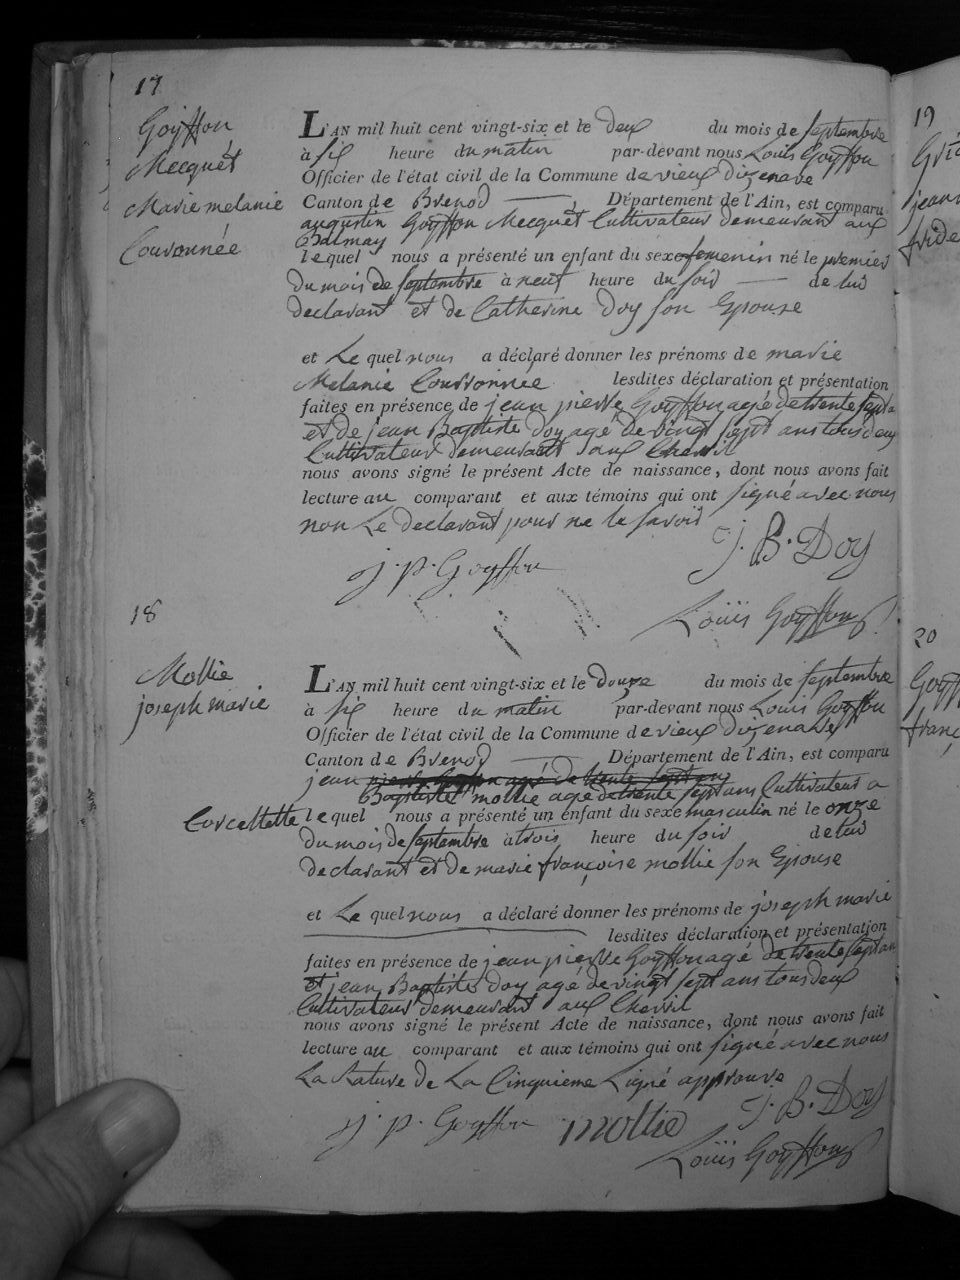 17
Goÿffon
Mecquêt
Marie melanie
Couronnée
L'AN mil huit cent vingt-six et le deux du mois de septembre
à six heure du matin par-devant nous Louis Goyffon
Officier de l'état civil de la Commune de vieux dizenave
Canton de Brenod Département de l'Ain, est comparu
augustin Goyffon Mecquêt Cultivateur demeurant aux
Balmay
lequel nous a présenté un enfant du sexe femenin né le premier
du mois de septembre à neuf heure du soir de lui
declarant et de Catherine Doy son Epouse
et Le quel nous a déclaré donner les prénoms de marie
Melanie Couronnee lesdites déclaration et présentation
faites en présence de jean pierre Goyffon agé de trente sept a
et de jean Baptiste Doy agé de vingt sept ans tous deux
Cultivateur demeurant aux
nous avons signé le présent Acte de naissance, dont nous avons fait
lecture au comparant et aux témoins qui ont signé avec nous
non Le declarant pour ne le savoir
J. B. Doy
j. p. Goyffon
Louïs Goÿffon
18
Mollie
joseph marie
L'AN mil huit cent vingt-six et le douze du mois de septembre
à six heure du matin par-devant nous Louis Goyffon
Officier de l'état civil de la Commune de vieux dizenave
Canton de Brenod Département de l'Ain, est comparu
jean
Baptiste mollie agé de trente sept ans Cultivateur a
Corcellette lequel nous a présenté un enfant du sexe masculin né le onze
du mois de septembre à trois heure du soir de lui
declarant et de marie françoise mollie son Epouse
et Le quel nous a déclaré donner les prénoms de joseph marie
lesdites déclaration et présentation
faites en présence de jean pierre Goyffon agé de trente sept an
et jean Baptiste Doy agé de vingt sept ans tous deux
Cultivateur demeurant aux
nous avons signé le présent Acte de naissance, dont nous avons fait
lecture au comparant et aux témoins qui ont signé avec nous
La Rature de La Cinquieme Ligne approuve
j. p. Goyffon mollie J. B. Doy
Louïs Goÿffon
19
20